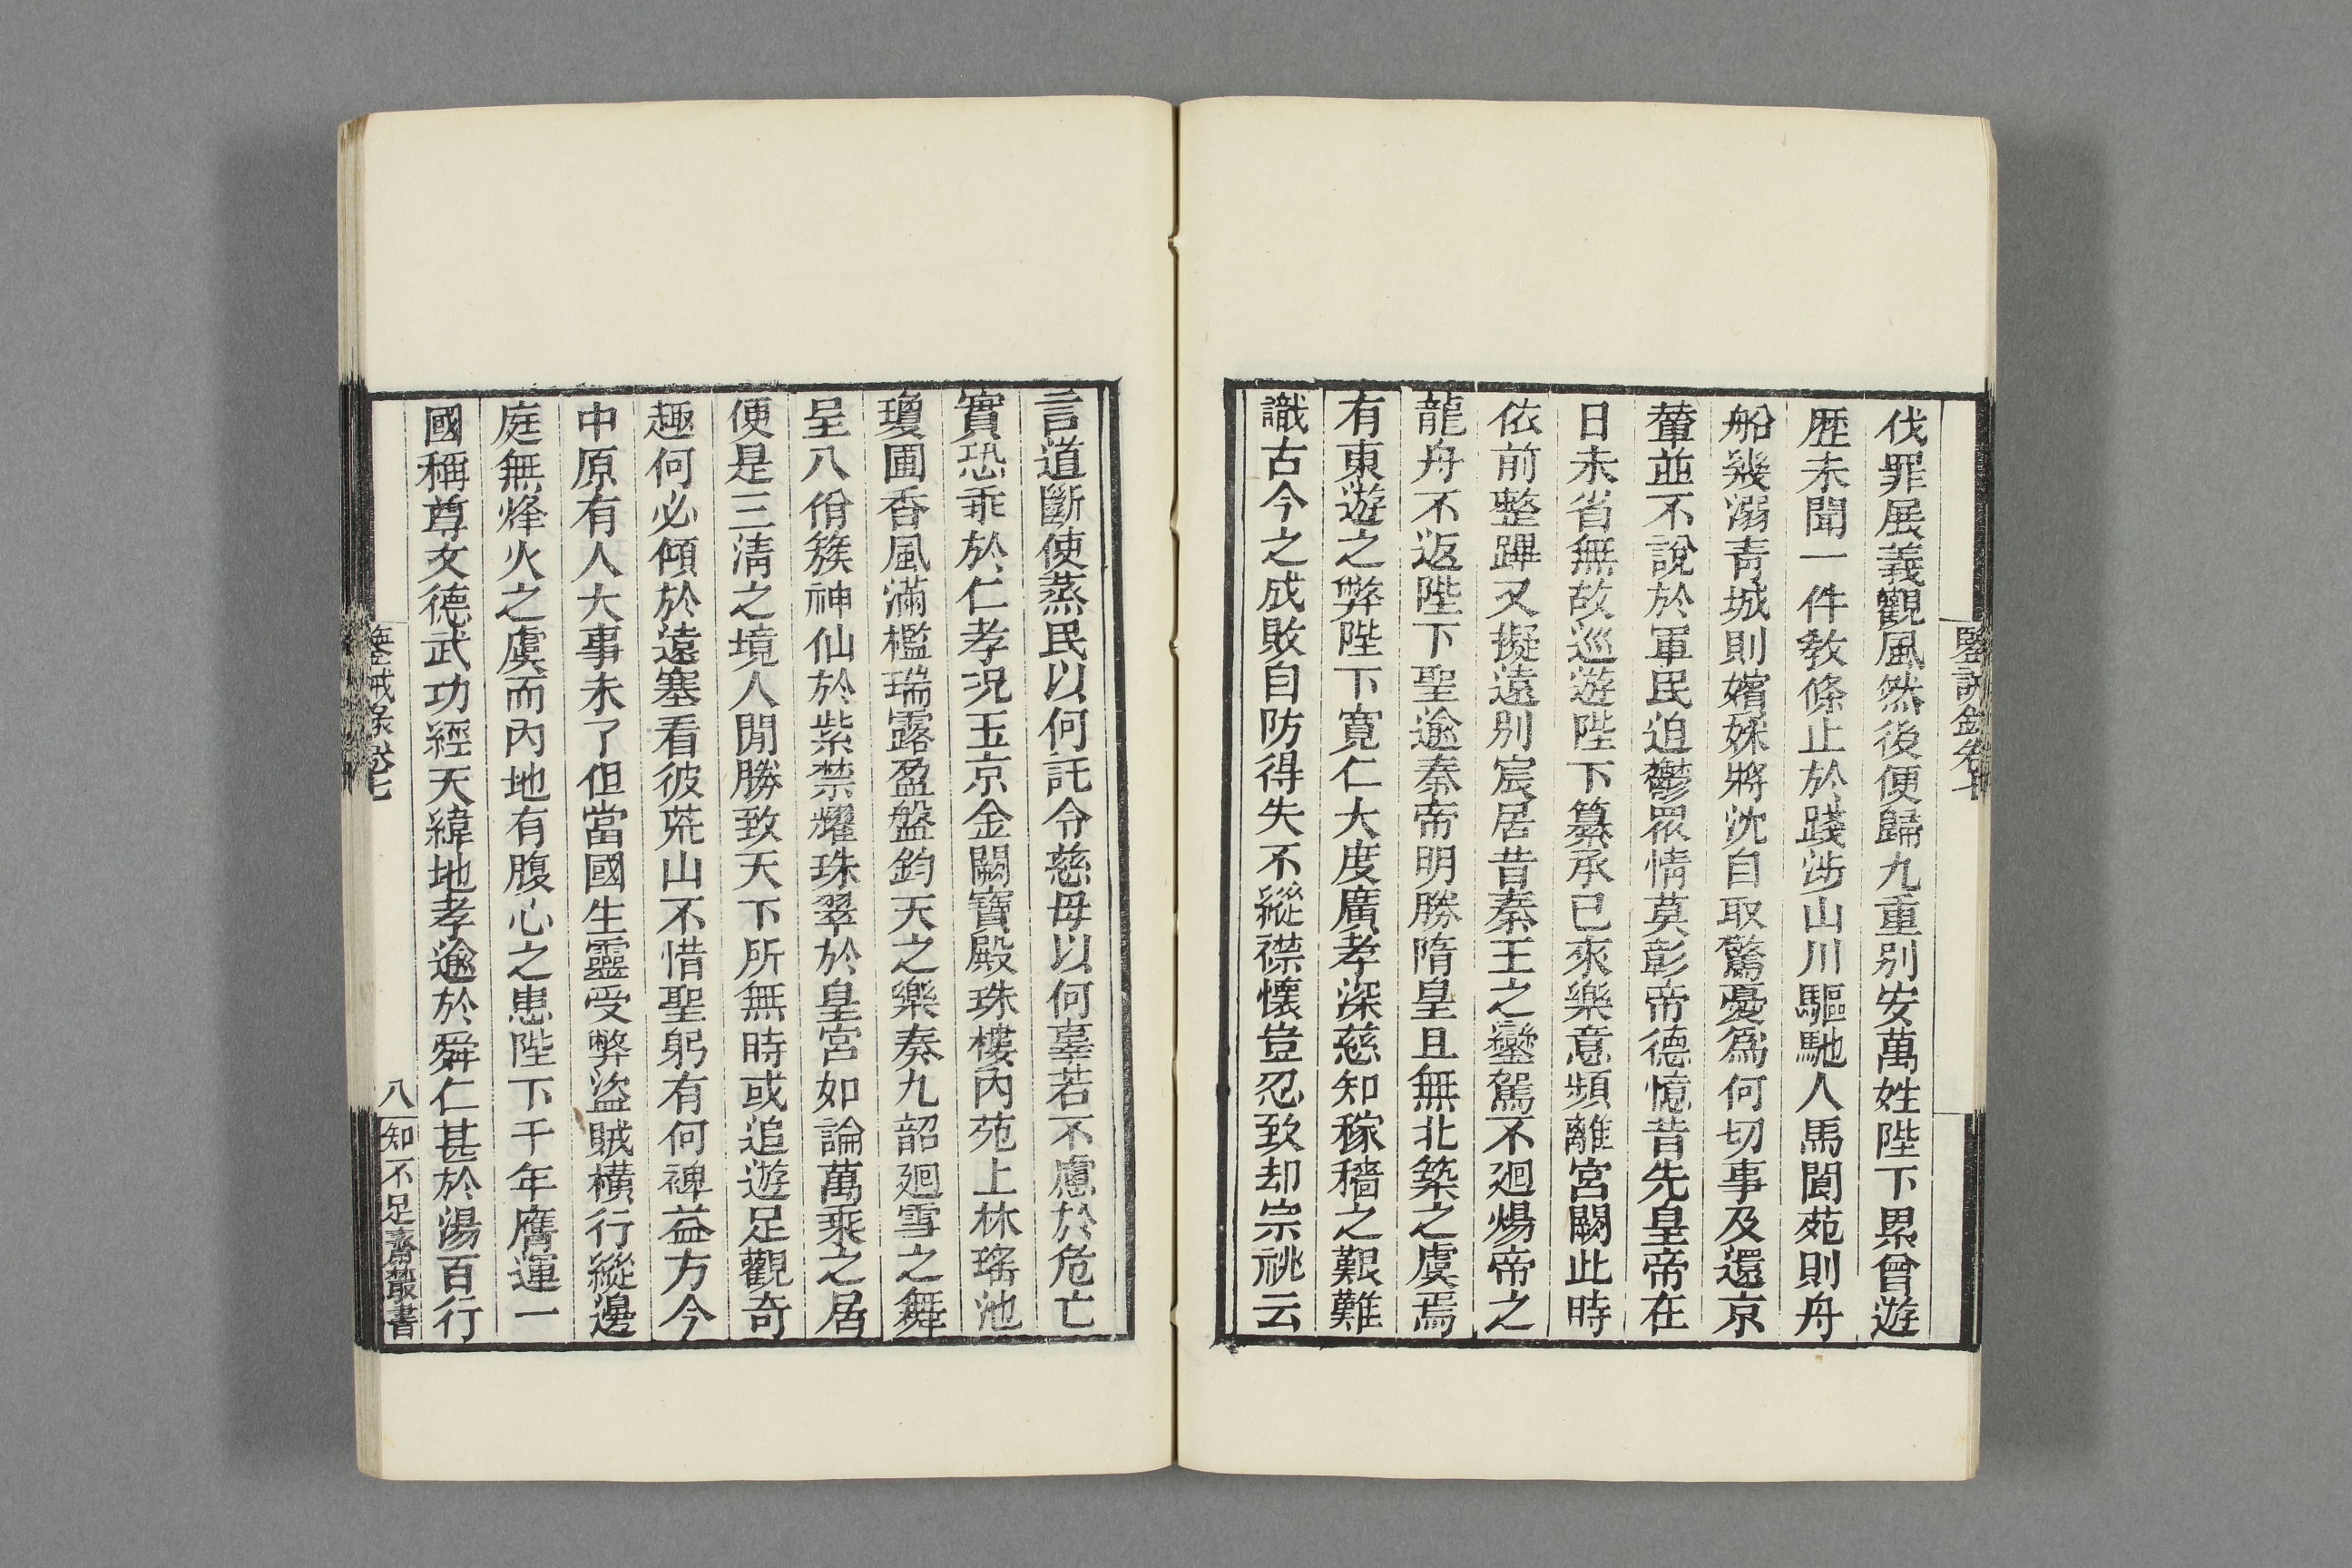 鑒誡錄卷七
伐罪展義觀風然後便歸九重别安萬姓陛下累曾遊
歷未聞一件教條止於踐涉山川驅馳人馬閬苑則舟
船幾溺青城則嬪婇將沈自取驚憂爲何切事及還京
輦並不說於軍民迫鬱眾情莫彰帝德憶昔先皇帝在
日未省無故巡遊陛下纂承已來樂意頻離宮闕此時
依前整蹕又擬遠别宸居昔秦王之鑾駕不廻煬帝之
龍舟不返陛下聖逾秦帝明勝隋皇且無北築之虞焉
有東遊之弊陛下寬仁大度廣孝深慈知稼穡之艱難
識古今之成敗自防得失不縱襟懷豈忍致却宗祧云
言道斷使蒸民以何託令慈母以何辜若不慮於危亡
實恐乖於仁孝況玉京金闕寶殿珠樓內苑上林瑤池
瓊圃香風滿檻瑞露盈盤鈞天之樂奏九韶廻雪之舞
呈八佾簇神仙於紫禁耀珠翠於皇宮如論萬乘之居
便是三淸之境人閒勝致天下所無時或追遊足觀奇
趣何必傾於遠塞看彼荒山不惜聖躬有何裨益方今
中原有人大事未了但當國生靈受弊盜賊橫行縱邊
庭無烽火之虞而內地有腹心之患陛下千年膺運一
國稱尊文德武功經天緯地孝逾於舜仁甚於湯百行
鑒誡錄卷七
八
知不足齋叢書